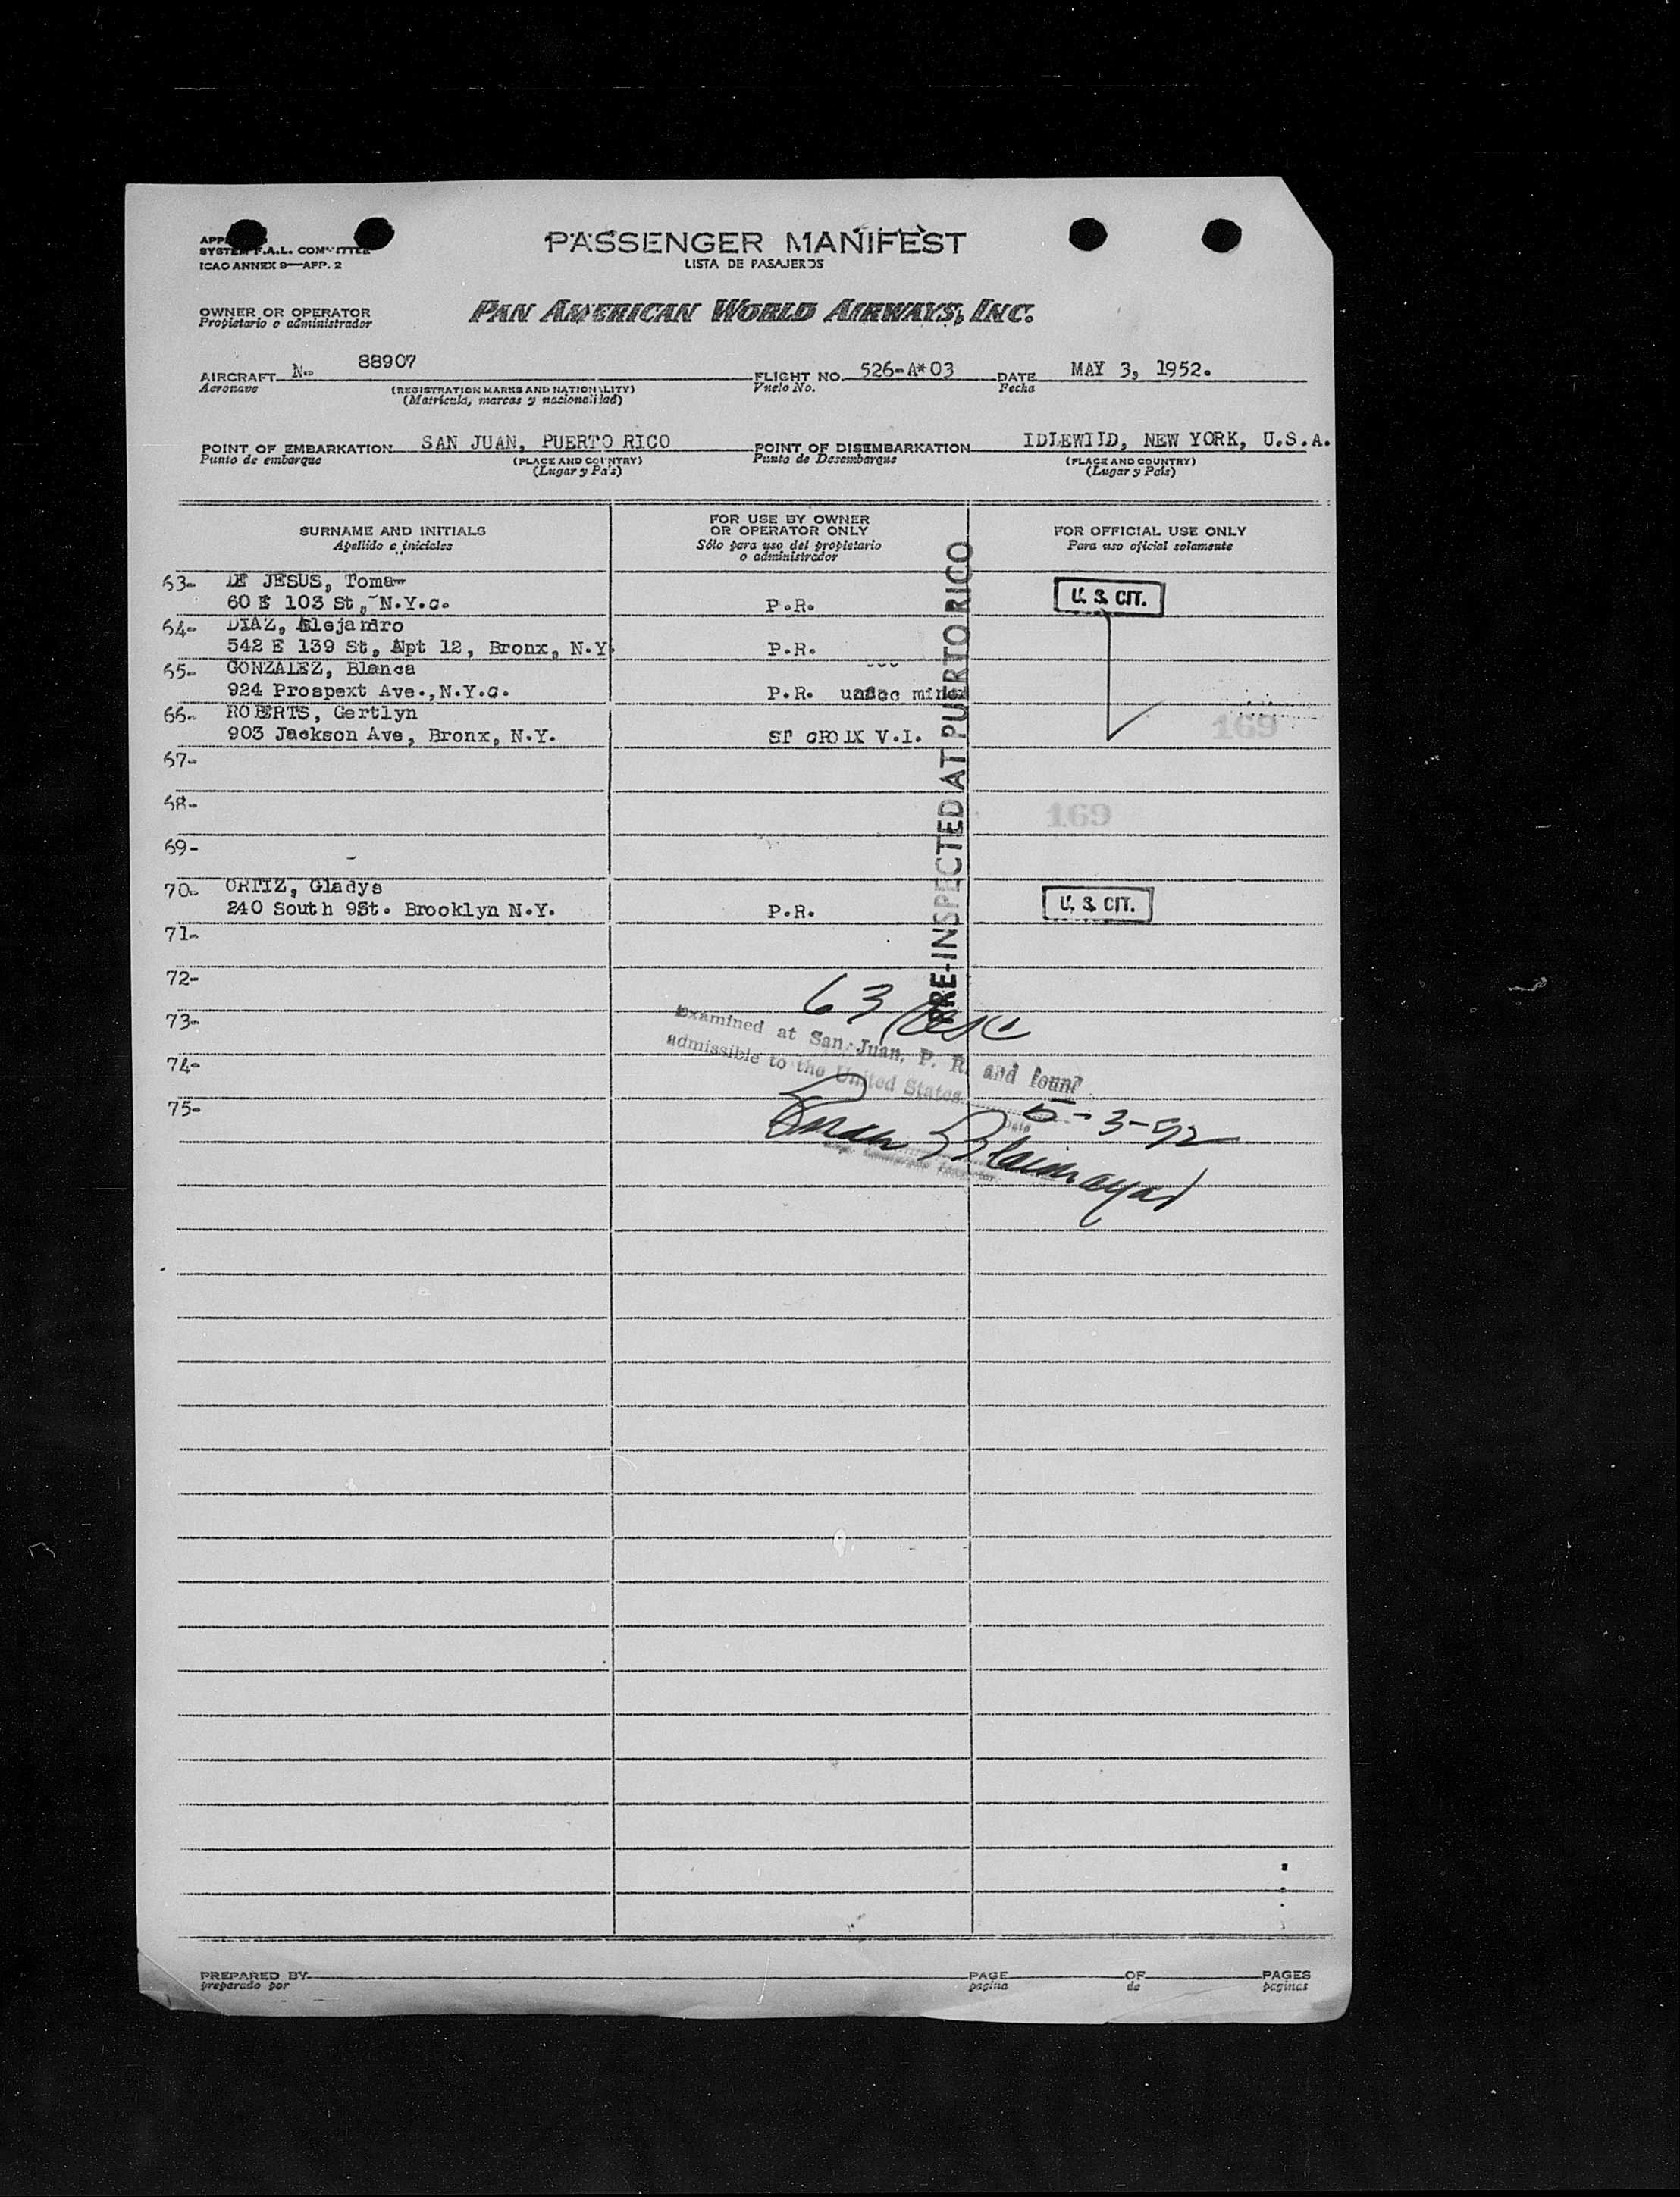 PASSENGER MANIFEST
LISTA DE PASAJEROS
SYSTEM F.A.L. COMMITTEE
ICAO ANNEX 9—APP. 2
OWNER OR OPERATOR
Propietario o administrador
PAN AMERICAN WORLD AIRWAYS, INC.
AIRCRAFT N- 88907 FLIGHT NO. 526-A*03 DATE MAY 3, 1952.
Aeronave (REGISTRATION MARKS AND NATIONALITY) Vuelo No. Fecha
(Matricula, marcas y nacionalidad)
POINT OF EMBARKATION SAN JUAN, PUERTO RICO POINT OF DISEMBARKATION IDLEWILD, NEW YORK, U.S.A.
Punto de embarque (PLACE AND COUNTRY) Punto de Desembarque (PLACE AND COUNTRY)
(Lugar y País) (Lugar y País)
SURNAME AND INITIALS FOR USE BY OWNER OR OPERATOR ONLY FOR OFFICIAL USE ONLY
Apellido e iniciales Sólo para uso del propietario o administrador Para uso oficial solamente
63- DE JESUS, Toma
60 E 103 St, N.Y.C. P.R. U. S. CIT.
64- DIAZ, Alejandro
542 E 139 St, Apt 12, Bronx, N.Y. P.R.
65- GONZALEZ, Blanca
924 Prospext Ave.,N.Y.C. P.R. unacc minor
66- ROBERTS, Gertlyn
903 Jackson Ave, Bronx, N.Y. ST CROIX V.I. 169
67-
68- 169
69-
70- ORTIZ, Gladys
240 South 9St. Brooklyn N.Y. P.R. U. S. CIT.
71-
72-
73-
74-
75-
PRE-INSPECTED AT PUERTO RICO
63
Examined at San Juan, P. R. and found
admissible to the United States.
5-3-52
Date
PREPARED BY PAGE OF PAGES
preparado por pagina de paginas